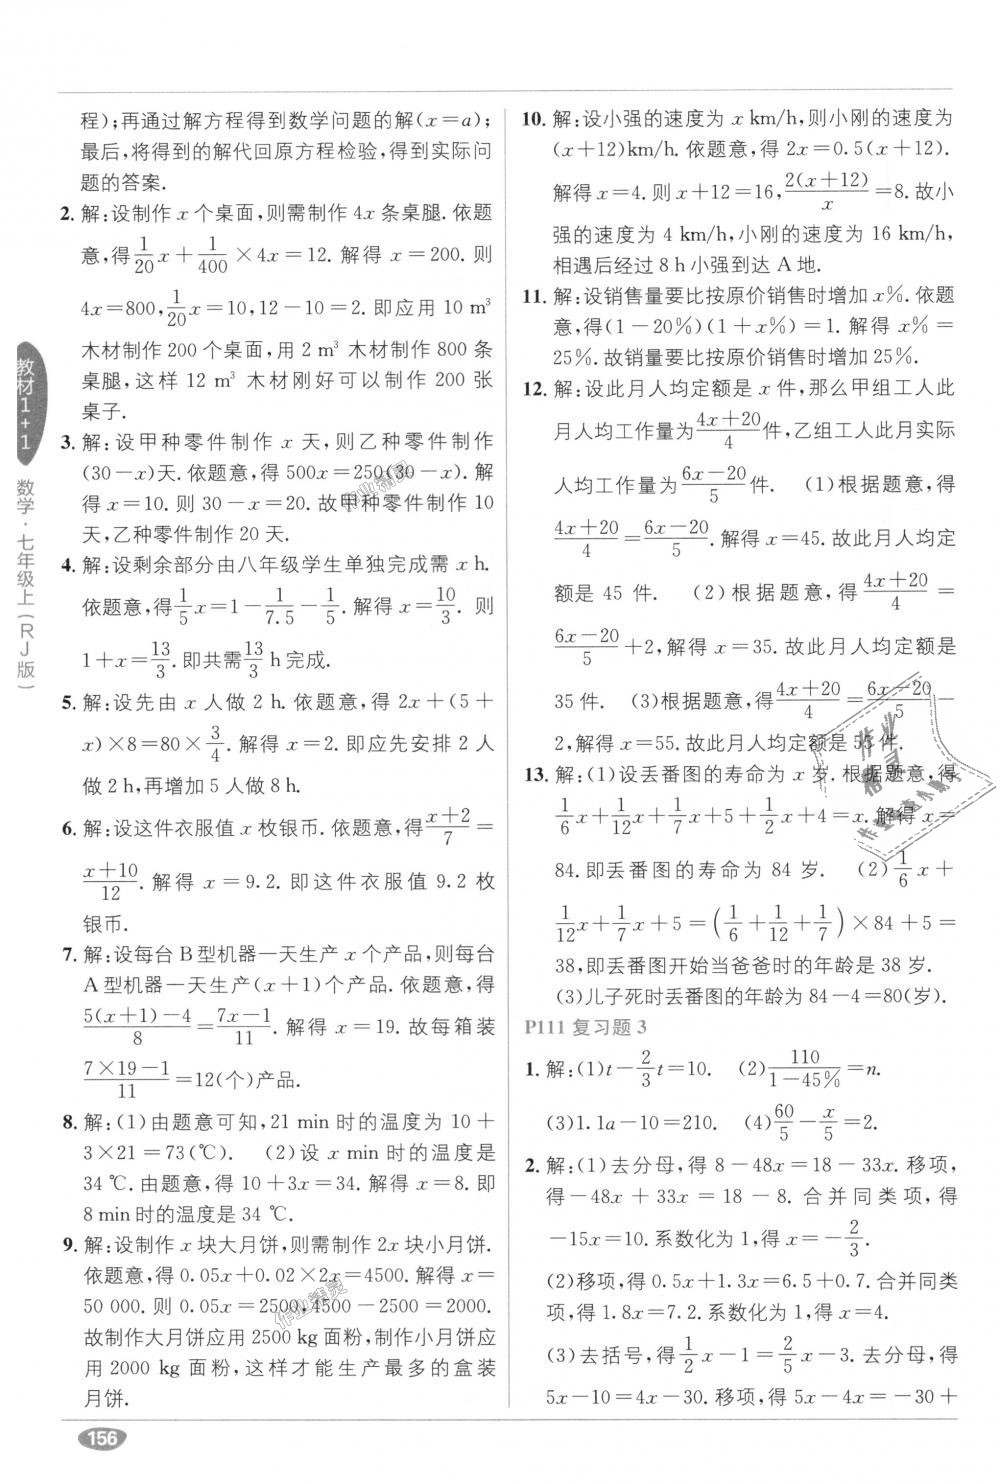 程);再通过解方程得到数学问题的解(x=a);
最后,将得到的解代回原方程检验,得到实际问
题的答案.
2. 解:设制作 x 个桌面,则需制作 4x 条桌腿.依题
意,得1/20x+1/400×4x=12. 解得 x=200. 则
4x=800,1/20x=10,12-10=2. 即应用 10 m³
木材制作 200 个桌面,用 2 m³ 木材制作 800 条
桌腿,这样 12 m³ 木材刚好可以制作 200 张
桌子.
3. 解:设甲种零件制作 x 天,则乙种零件制作
(30-x)天.依题意,得 500x=250(30-x). 解
得 x=10. 则 30-x=20. 故甲种零件制作 10
天,乙种零件制作 20 天.
4. 解:设剩余部分由八年级学生单独完成需 x h.
依题意,得1/5x=1-1/7.5-1/5. 解得 x=10/3. 则
1+x=13/3. 即共需13/3 h完成.
5. 解:设先由 x 人做 2 h. 依题意,得 2x+(5+
x)×8=80×3/4. 解得 x=2. 即应先安排 2 人
做 2 h,再增加 5 人做 8 h.
6. 解:设这件衣服值 x 枚银币.依题意,得(x+2)/7=
(x+10)/12. 解得 x=9.2. 即这件衣服值 9.2 枚
银币.
7. 解:设每台 B型机器一天生产 x 个产品,则每台
A型机器一天生产(x+1)个产品.依题意,得
(5(x+1)-4)/8=(7x-1)/11. 解得 x=19. 故每箱装
(7×19-1)/11=12(个)产品.
8. 解:(1)由题意可知,21 min 时的温度为 10+
3×21=73(℃). (2)设 x min 时的温度是
34 ℃.由题意,得 10+3x=34. 解得 x=8. 即
8 min时的温度是 34 ℃.
9. 解:设制作 x 块大月饼,则需制作 2x 块小月饼.
依题意,得 0.05x+0.02×2x=4500. 解得 x=
50 000. 则 0.05x=2500,4500-2500=2000.
故制作大月饼应用 2500 kg 面粉,制作小月饼应
用 2000 kg 面粉,这样才能生产最多的盒装
月饼.
10. 解:设小强的速度为 x km/h,则小刚的速度为
(x+12)km/h. 依题意,得 2x=0.5(x+12).
解得 x=4. 则 x+12=16,2(x+12)/x=8. 故小
强的速度为 4 km/h,小刚的速度为 16 km/h,
相遇后经过 8 h小强到达 A 地.
11. 解:设销售量要比按原价销售时增加 x%. 依题
意,得(1-20%)(1+x%)=1. 解得 x%=
25%. 故销售量要比按原价销售时增加 25%.
12. 解:设此月人均定额是 x 件,那么甲组工人此
月人均工作量为(4x+20)/4件,乙组工人此月实际
人均工作量为(6x-20)/5件. (1)根据题意,得
(4x+20)/4=(6x-20)/5. 解得 x=45. 故此月人均定
额是 45 件. (2)根据题意,得(4x+20)/4=
(6x-20)/5+2,解得 x=35. 故此月人均定额是
35件. (3)根据题意,得(4x+20)/4=(6x-20)/5-
2,解得 x=55. 故此月人均定额是 55 件.
13. 解:(1)设丢番图的寿命为 x 岁. 根据题意,得
1/6x+1/12x+1/7x+5+1/2x+4=x. 解得 x=
84. 即丢番图的寿命为 84 岁. (2)1/6x+
1/12x+1/7x+5=(1/6+1/12+1/7)×84+5=
38,即丢番图开始当爸爸时的年龄是 38 岁.
(3)儿子死时丢番图的年龄为 84-4=80(岁).
P111 复习题 3
1. 解:(1)t-2/3t=10. (2)110/(1-45%)=n.
(3)1.1a-10=210. (4)60/5-x/5=2.
2. 解:(1)去分母,得 8-48x=18-33x. 移项,
得-48x+33x=18-8. 合并同类项,得
-15x=10. 系数化为 1,得 x=-2/3.
(2)移项,得 0.5x+1.3x=6.5+0.7. 合并同类
项,得 1.8x=7.2. 系数化为 1,得 x=4.
(3)去括号,得1/2x-1=2/5x-3. 去分母,得
5x-10=4x-30. 移项,得 5x-4x=-30+
教材1+1
数学·七年级上(RJ版)
156
作业精灵
作业精灵
作业
精灵